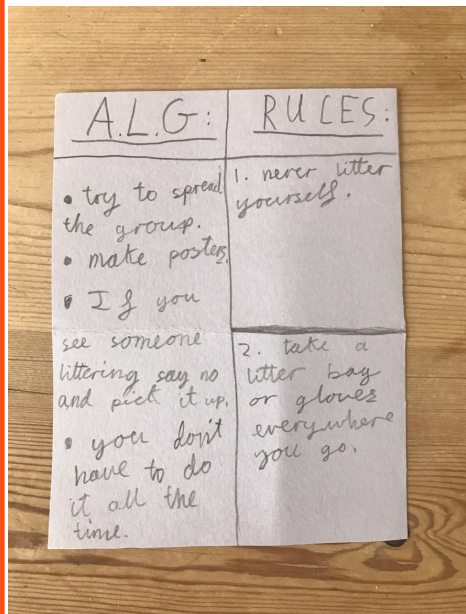 A.L.G:
• try to spread
the group.
• make posters.
• If you
see someone
littering say no
and pick it up.
• you don't
have to do
it all the
time.
RULES:
1. never litter
yourself.
2. take a
litter bag
or gloves
everywhere
you go.